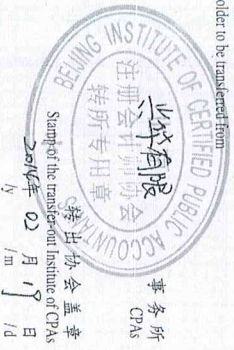 older to be transferred from
事务所
CPAs
BEIJING INSTITUTE OF CERTIFIED PUBLIC ACCOUNTANTS
注册会计师协会
转所专用章
转出协会盖章
Stamp of the transfer-out Institute of CPAs
2014年 02月 19日
/y /m /d